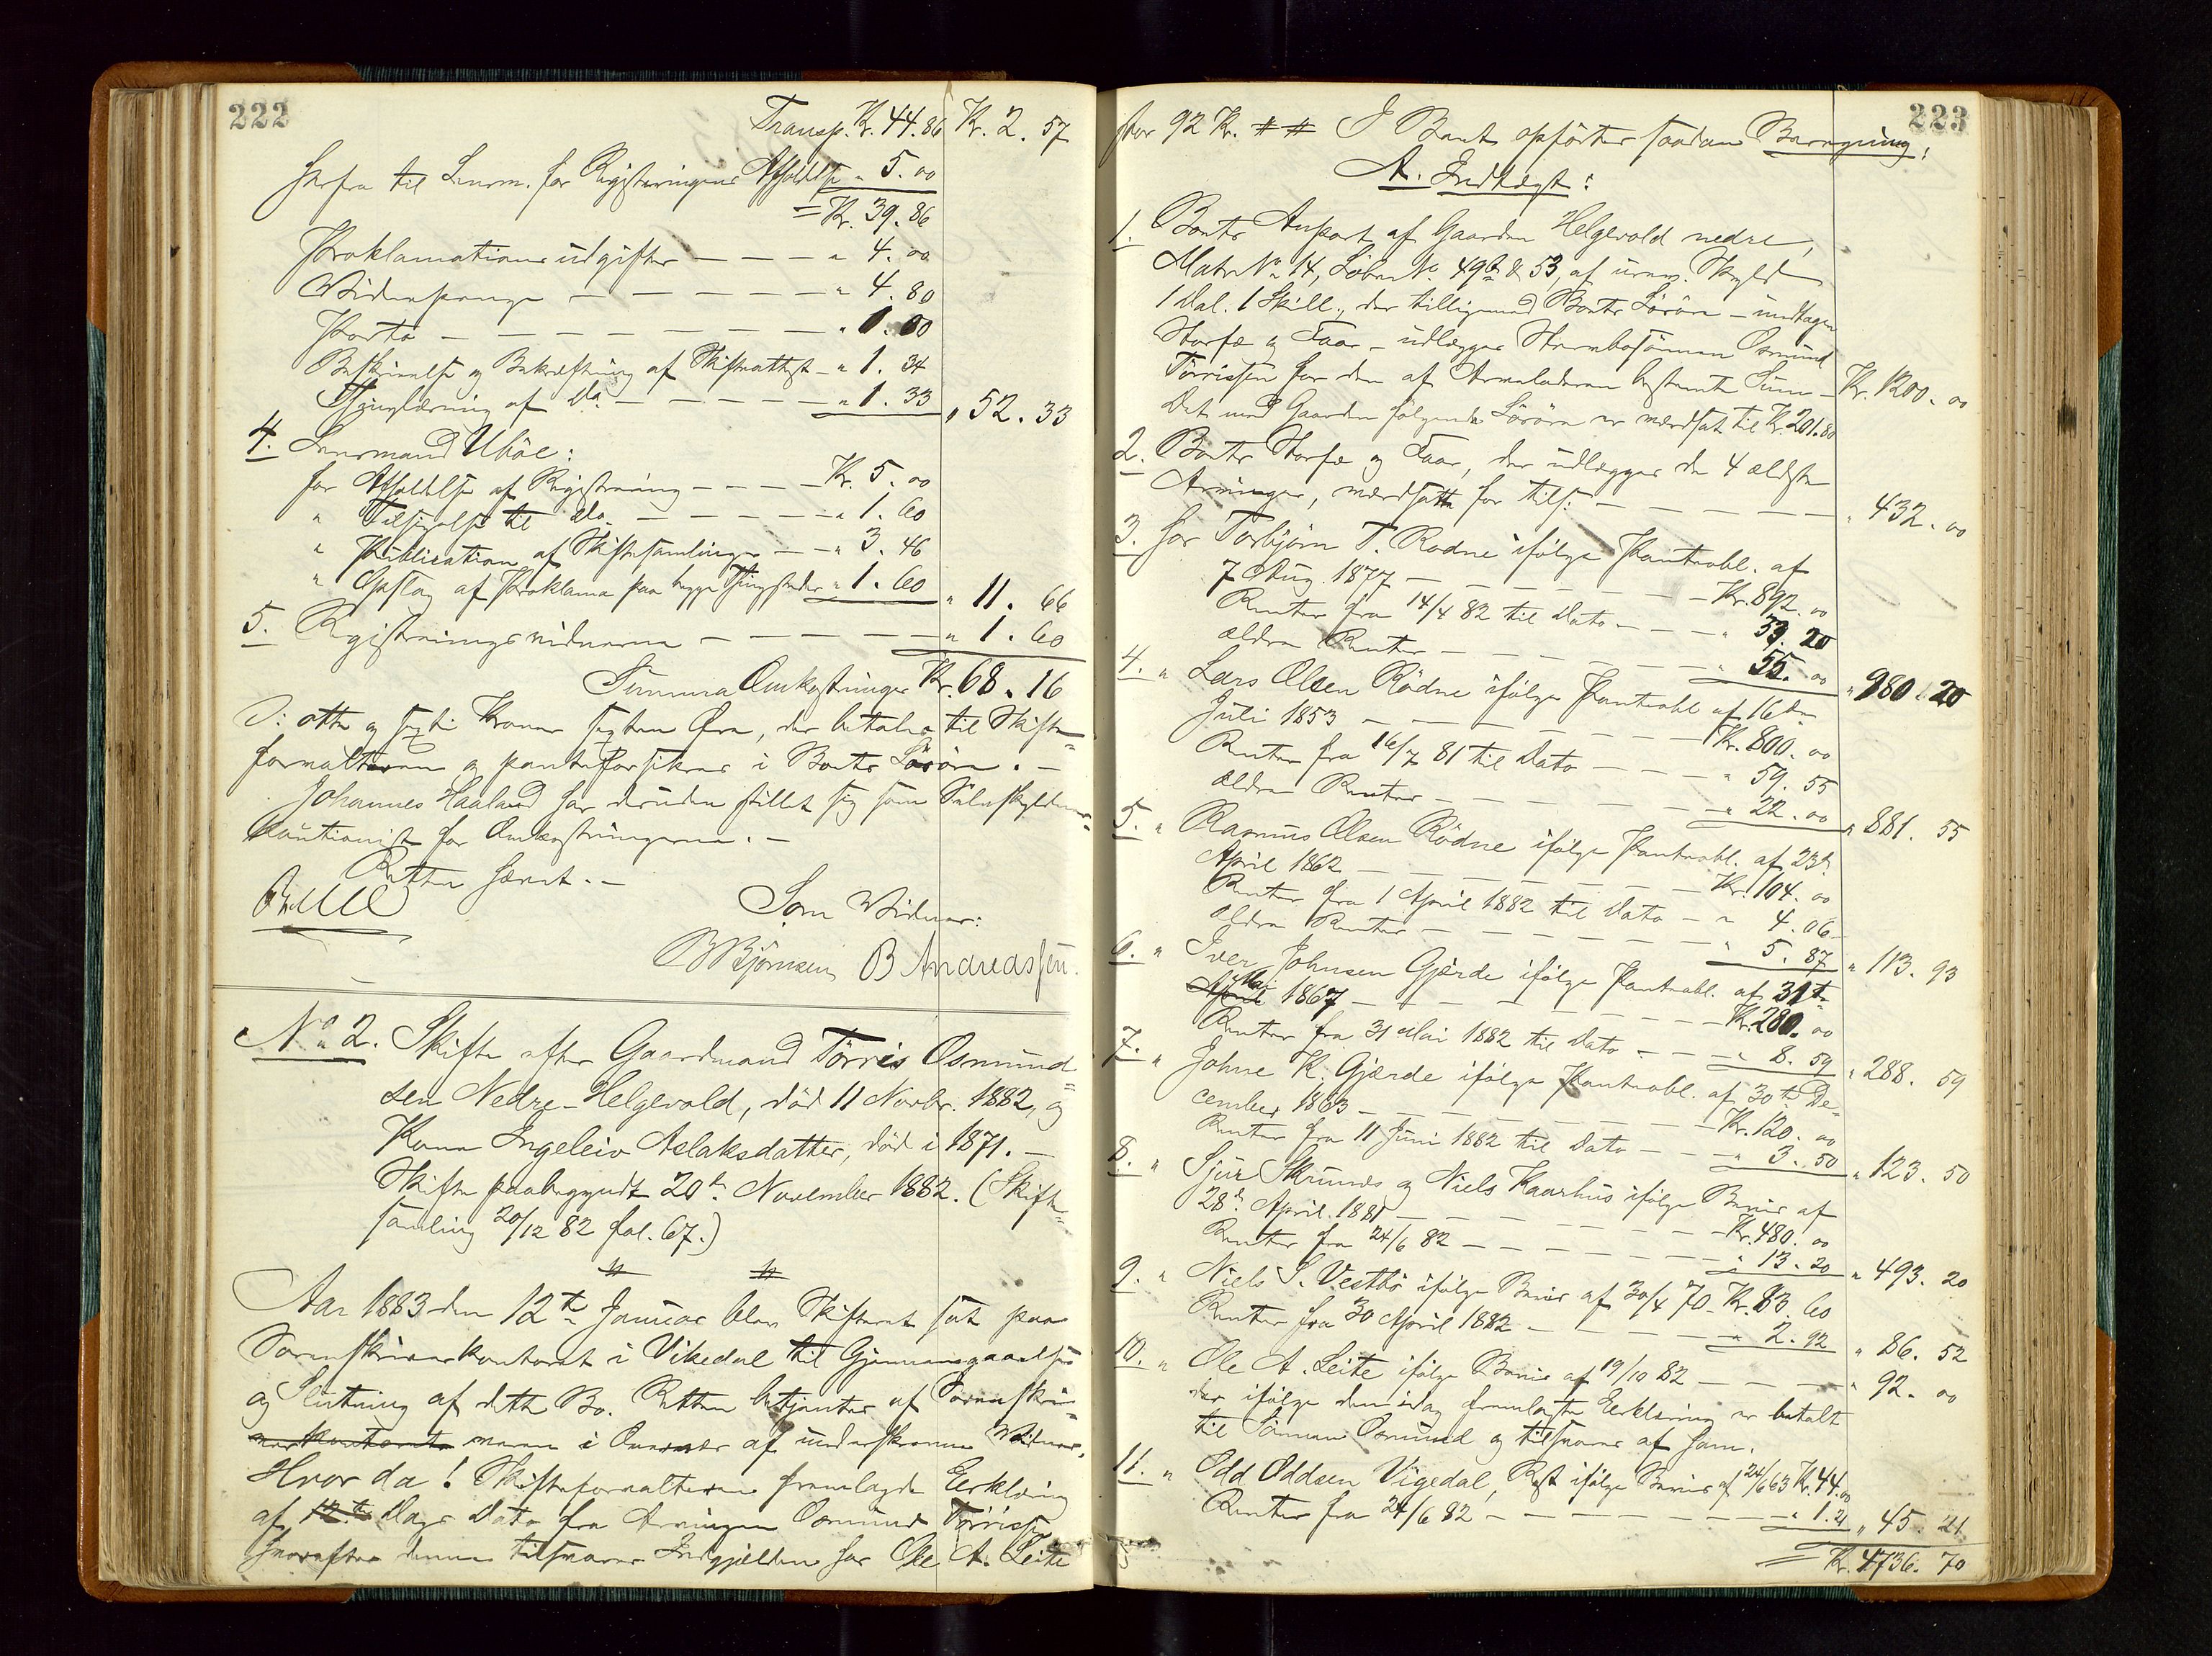 222
Transp. Kr. 44.86 Kr. 2. 57
herfra til Lensm. for Registreringens Afholdelse " 5.00
= Kr. 39.86
Proklamationsudgifter — — — " 4.00
Vidnepenge — — — — — " 4.80
Porto — — — — — — — "
Beskrivelse og Bekræftning af Skifteattest — " 1.34
Thinglæsning af Do. — — — — " 1.33 " 52.33
4. Lensmand Ubøe:
for Afholdelse af Registrering — — — Kr. 5.00
" Tilsigelse til do. — — — — " 1.60
" Publication af Skiftesamlinger — — " 3.46
" Opslag af Proklama paa begge Thingsteder " 1.60 " 11.66
5. Registreringsvidnerne — — — — — " 1.60
Summa Omkostninger Kr. 68.16
D: otte og sexti Kroner sexten Øre, der betales til Skifte=
forvalteren og panteforsikres i Boets Løsøre. —
Johannes Haaland har desuden stillet sig som Selvskyldner=
kautionist for Omkostningerne. —
Retten hævet. —
Som Vidner:
B Björnsen B Andreassen.
No 2. Skifte efter Gaardmand Törris Osmund=
sen Nedre-Helgevold, död 11 Novbr. 1882, og
Kone Ingeleiv Aslaksdatter, död i 1871. —
Skifte paabegyndt 20de November 1882. (Skifte=
samling 20/12 82 fol. 67.)
Aar 1883 den 12te Januar blev Skifteret sat paa
Sorenskriverkontoret i Vikedal til Gjennemgaaelse
og Slutning af dette Bo. Retten betjentes af Sorenskri=
veren i Overvær af underskrevne Vidner,
Hvor da! Skifteforvalteren fremlagde Erklæring
af Dags Dato fra Arvingen Osmund Törrissen
hvorefter denne tilsvarer Indgjælden hos Ole A. Leite
223
stor 92 Kr. I Boet opförtes saadan Beregning:
A. Indtægt:
1. Boets Anpart af Gaarden Helgevold nedre,
Matr. No 14, Løbe No. 49b & 53, af urev. Skyld
1 Dal. 1 Skill., der tilligemed Boets Løsøre — undtagen
Storfæ og Faar — udlægges Stervbosönnen Osmund
Törrissen for den af Arveladeren bestemte Sum — Kr. 1200.00
Det med Gaarden følgende Løsøre er værdsat til Kr. 201.80
2. Boets Storfæ og Faar, der udlægges de 4 ældste
Arvinger, værdsatte for tils: — — — — — " 432.00
3. Hos Torbjörn T. Rødne ifölge Panteobl. af
7 Aug. 1877 — — — — — Kr. 892.00
Renter fra 14/4 82 til Dato — — — " 33.20
ældre Renter — — — — — " 55.00 " 980.20
4. " Lars Olsen Rödne ifölge Panteobl. af 16de
Juli 1853 — — — — — Kr. 800.00
Renter fra 16/7 81 til Dato — — — " 59.55
ældre Renter — — — — — " 22.00 " 881.55
5. " Rasmus Olsen Rödne ifölge Panteobl. af 23de
April 1862 — — — — — Kr. 104.00
Renter fra 1 April 1882 til Dato — " 4.06
ældre Renter — — — — — " 5.87 " 113.93
6. " Iver Johnsen Gjærde ifölge Panteobl. af 31te
Mai 1867 — — — — — Kr. 280.00
Renter fra 31 Mai 1882 til Dato — — " 8.59 " 288.59
7. " Johne K. Gjærde ifölge Panteobl. af 30te De=
cember 1863 — — — — — Kr. 120.00
Renter fra 11 Juni 1882 til Dato — — " 3.50 " 123.50
8. " Sjur Skrunes og Niels Kaarhus ifölge Bevis af
28de April 1881 — — — — — Kr. 480.00
Renter fra 24/6 82 — — — — " 13.20 " 493.20
9. " Niels S. Vestbö ifölge Bevis af 30/4 70 Kr. 83.60
Renter fra 30 April 1882 — — — — " 2.92 " 86.52
10. " Ole A. Leite ifölge Bevis af 19/10 82 — — — " 92.00
der ifölge den idag fremlagte Erklæring er betalt
til Sönnen Osmund og tilsvares af ham.
11. " Odd Oddsen Vigedal, Rest ifölge Bevis af 24/6 63 Kr. 44.00
Renter fra 24/6 82 — — — — " 1.21 " 45.21
= Kr. 4736.70